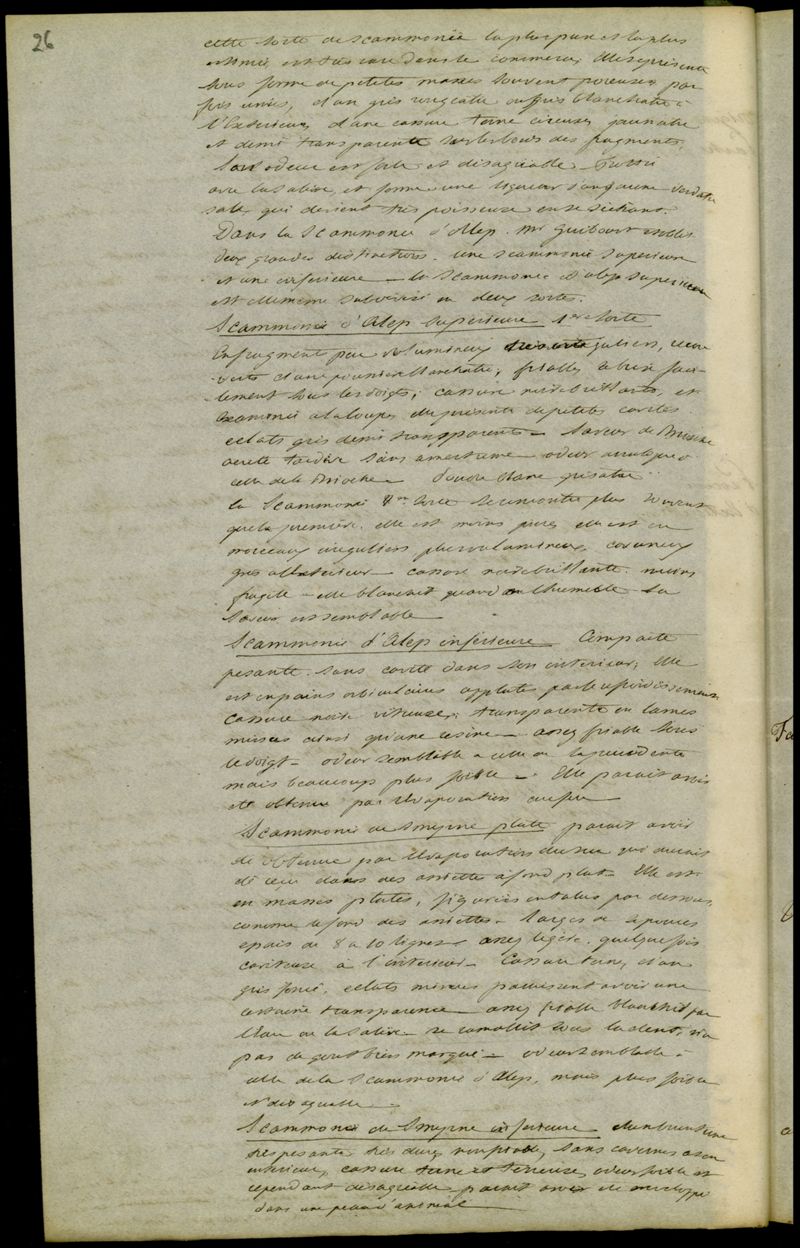 26
cette sorte de scammonée la plus pure et la plus
estimée est très rare dans le commerce, elle se présente
sous forme de petites masses souvent poreuses par
fois unies, d'un gris rougeatre ou gris blanchatre à
l'Exterieur, d'une cassure terne cireuse jaunatre
et demi transparente sur les bords des fragments.
Son odeur est forte et désagréable. Frottée
avec la salive, elle forme une liqueur d'un jaune verdatre
sale qui devient très poisseuse en se séchant.
Dans la Scammonée d'Alep. Mr Guibourt établit
deux grandes distinctions. une scammonée superieure
et une inferieure — la Scammonée d'alep superieure
est elle même subdivisée en deux sortes.
Scammonée d'Alep Superieure 1ere Sorte
En fragment peu volumineux irréguliers, recou
verts d'une poussière blanchatre; friables, à briser faci-
lement sous les doigts; cassure noire brillante, et
Examinée à la loupe elle présente de petites cavités
eclats gris demi transparents — Saveur de Brioche
acreté tardive sans amertume — odeur analogue à
celle de la Brioche — Poudre blanc grisatre
la Scammonée 2me Sorte se rencontre plus souvent
que la première. elle est moins pure, elle est en
morceaux irréguliers plus volumineux, caverneux
gris à l'Exterieur — cassure noire brillante. moins
fragile — elle blanchit quand on l'humecte — Sa
saveur est semblable —
Scammonée d'Alep inférieure — Compacte
pesante. sans cavité dans son interieur; Elle
est en pains orbiculaires applatis par le refroidissement
Cassure noire vitreuse, transparente en lames
minces ainsi qu'une résine — assez friable sous
le doigt — odeur semblable à celle de la précédente
mais beaucoup plus faible —. Elle parait avoir
été obtenue par évaporation au feu —
Scammonée de Smyrne plate parait avoir
été obtenue par l'Evaporation du suc qui aurait
été reçu dans des assiettes à fond plat — Elle est
en masses plates, figurées en talus par dessous,
comme le fond des assiettes — larges de 4 pouces
epais de 8 à 10 lignes — assez légère. quelquefois
caviteuse à l'interieur — Cassure terne, d'un
gris foncé, eclats minces paraissant avoir une
certaine transparence — assez friable blanchit par
l'Eau ou la salive — se ramollit sous la dent, n'a
pas de gout très marqué — odeur semblable à
celle de la Scammonée d'Alep, mais plus faible
et désagréable —
Scammonée de Smyrne inférieure — d'un brun terne
très pesante, très dure, non friable, sans cavernes à son
interieur, cassure terne et terreuse, odeur faible et
cependant désagréable, parait avoir été enveloppé
dans une peau d'animal —